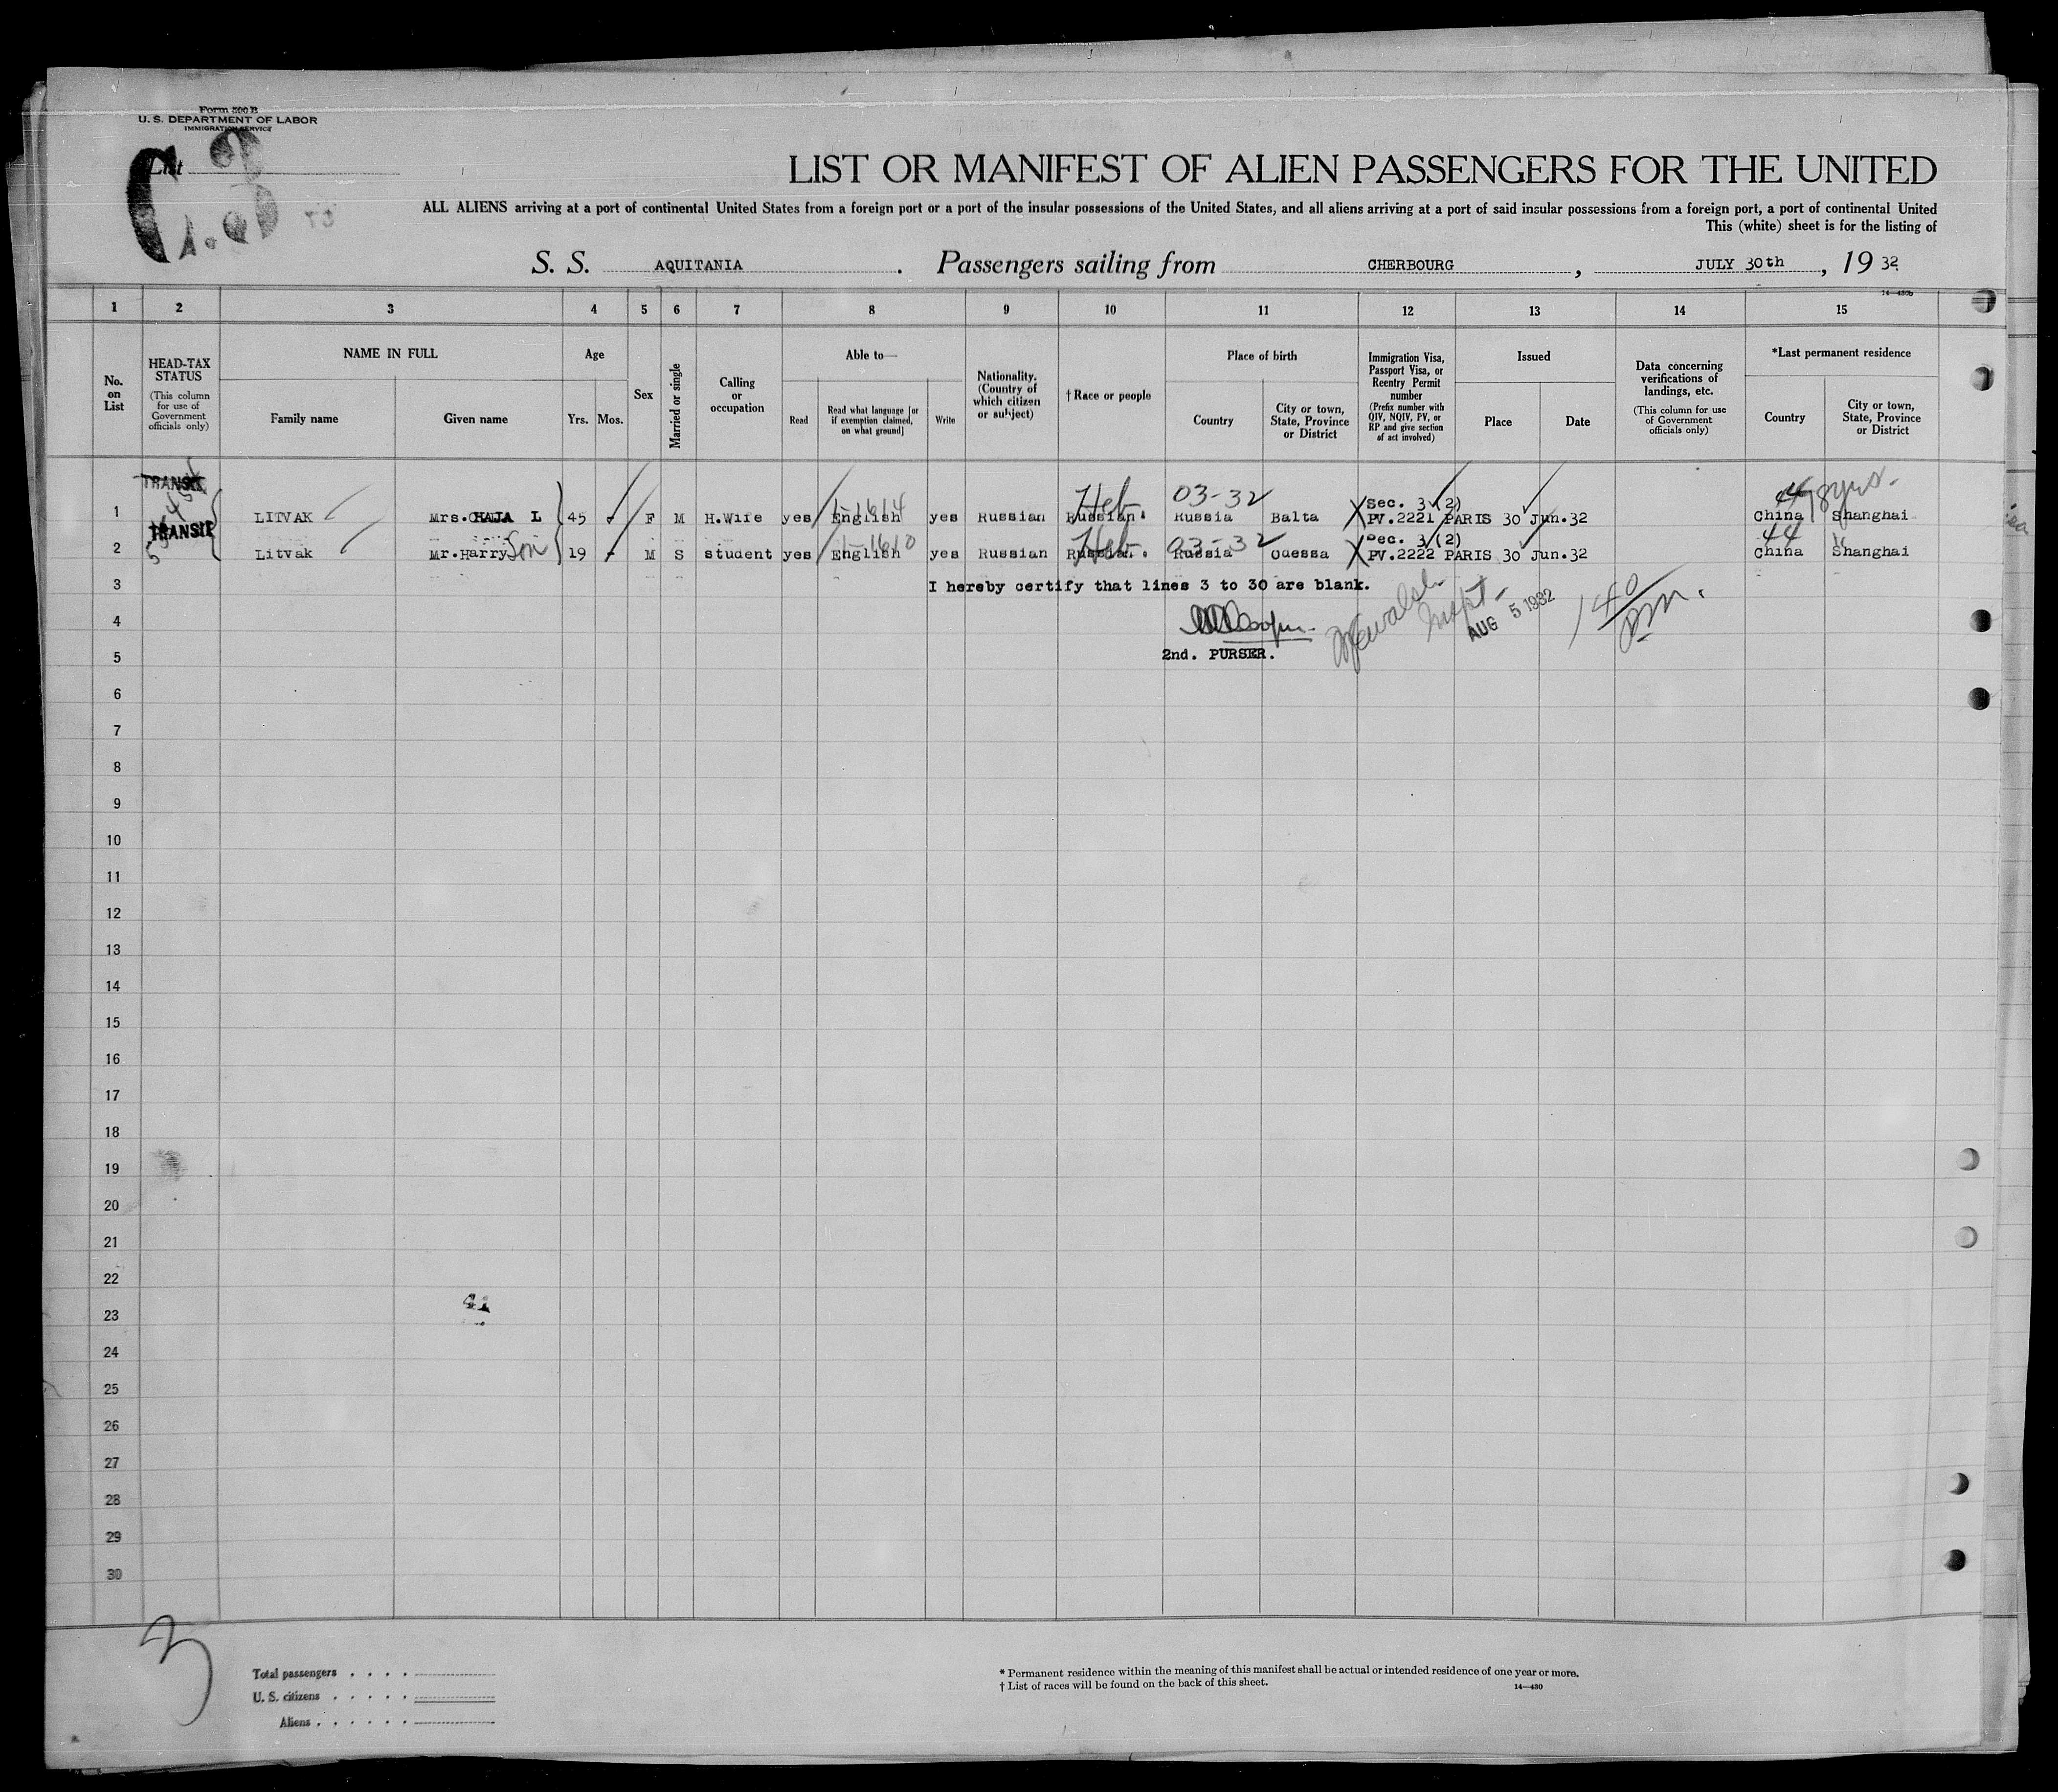 Form 500 B
U. S. DEPARTMENT OF LABOR
IMMIGRATION SERVICE
List
LIST OR MANIFEST OF ALIEN PASSENGERS FOR THE UNITED
ALL ALIENS arriving at a port of continental United States from a foreign port or a port of the insular possessions of the United States, and all aliens arriving at a port of said insular possessions from a foreign port, a port of continental United
This (white) sheet is for the listing of
S. S. AQUITANIA . Passengers sailing from CHERBOURG , JULY 30th , 19 32
14—480b
1 2 3 4 5 6 7 8 9 10 11 12 13 14 15
No. on List
HEAD-TAX STATUS
(This column for use of Government officials only)
NAME IN FULL
Family name
Given name
Age
Yrs. Mos.
Sex
Married or single
Calling or occupation
Able to—
Read
Read what language [or if exemption claimed, on what ground]
Write
Nationality. (Country of which citizen or subject)
† Race or people
Place of birth
Country
City or town, State, Province or District
Immigration Visa, Passport Visa, or Reentry Permit number
(Prefix number with QIV, NQIV, PV, or RP and give section of act involved)
Issued
Place
Date
Data concerning verifications of landings, etc.
(This column for use of Government officials only)
*Last permanent residence
Country
City or town, State, Province or District
TRANSIT
Heb 03-32 Sec. 3 (2) 44 8yrs-
1 LITVAK Mrs. CHAJA L 45 F M H.Wife yes English yes Russian Russian. Russia Balta PV.2221 PARIS 30 Jun.32 China Shanghai
TRANSIT
Heb 03-32 Sec. 3 (2) 44 "
2 Litvak Mr.Harry Son 19 M S student yes English yes Russian Russian. Russia Odessa PV.2222 PARIS 30 Jun.32 China Shanghai
3 I hereby certify that lines 3 to 30 are blank.
4 Inspt- AUG 5 1932 140 PM.
5 2nd. PURSER.
6
7
8
9
10
11
12
13
14
15
16
17
18
19
20
21
22
23
24
25
26
27
28
29
30
3
Total passengers
U. S. citizens
Aliens
* Permanent residence within the meaning of this manifest shall be actual or intended residence of one year or more.
† List of races will be found on the back of this sheet.
14—480